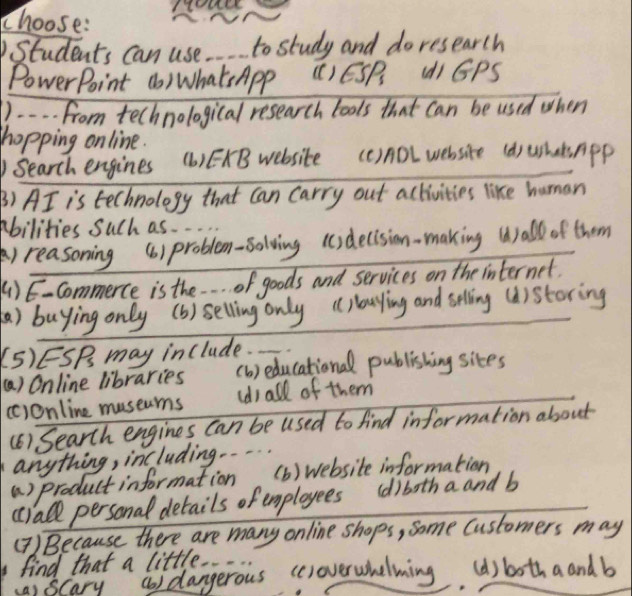 Model
Choose:
) Students can use ..... to study and do research
PowerPoint (b) WhatsApp (c) ESPs (d) GPS
) .... from technological research tools that can be used when
hopping online.
) Search engines (b) EKB website (c) ADL website (d) WhatsApp
3) AI is technology that can carry out activities like human
abilities such as .....
a) reasoning (b) problem-solving (c) decision-making (d) all of them
4) E-Commerce is the .... of goods and services on the internet.
(a) buying only (b) selling only (c) buying and selling (d) Storing
(5) ESPs may include .....
(a) Online libraries (b) educational publishing sites
(c) Online museums (d) all of them
(6) Search engines can be used to find information about
anything, including .....
(a) product information (b) website information
(c) all personal details of employees (d) both a and b
(7) Because there are many online shops, some customers may
find that a little .....
(a) Scary (b) dangerous (c) overwhelming (d) both a and b